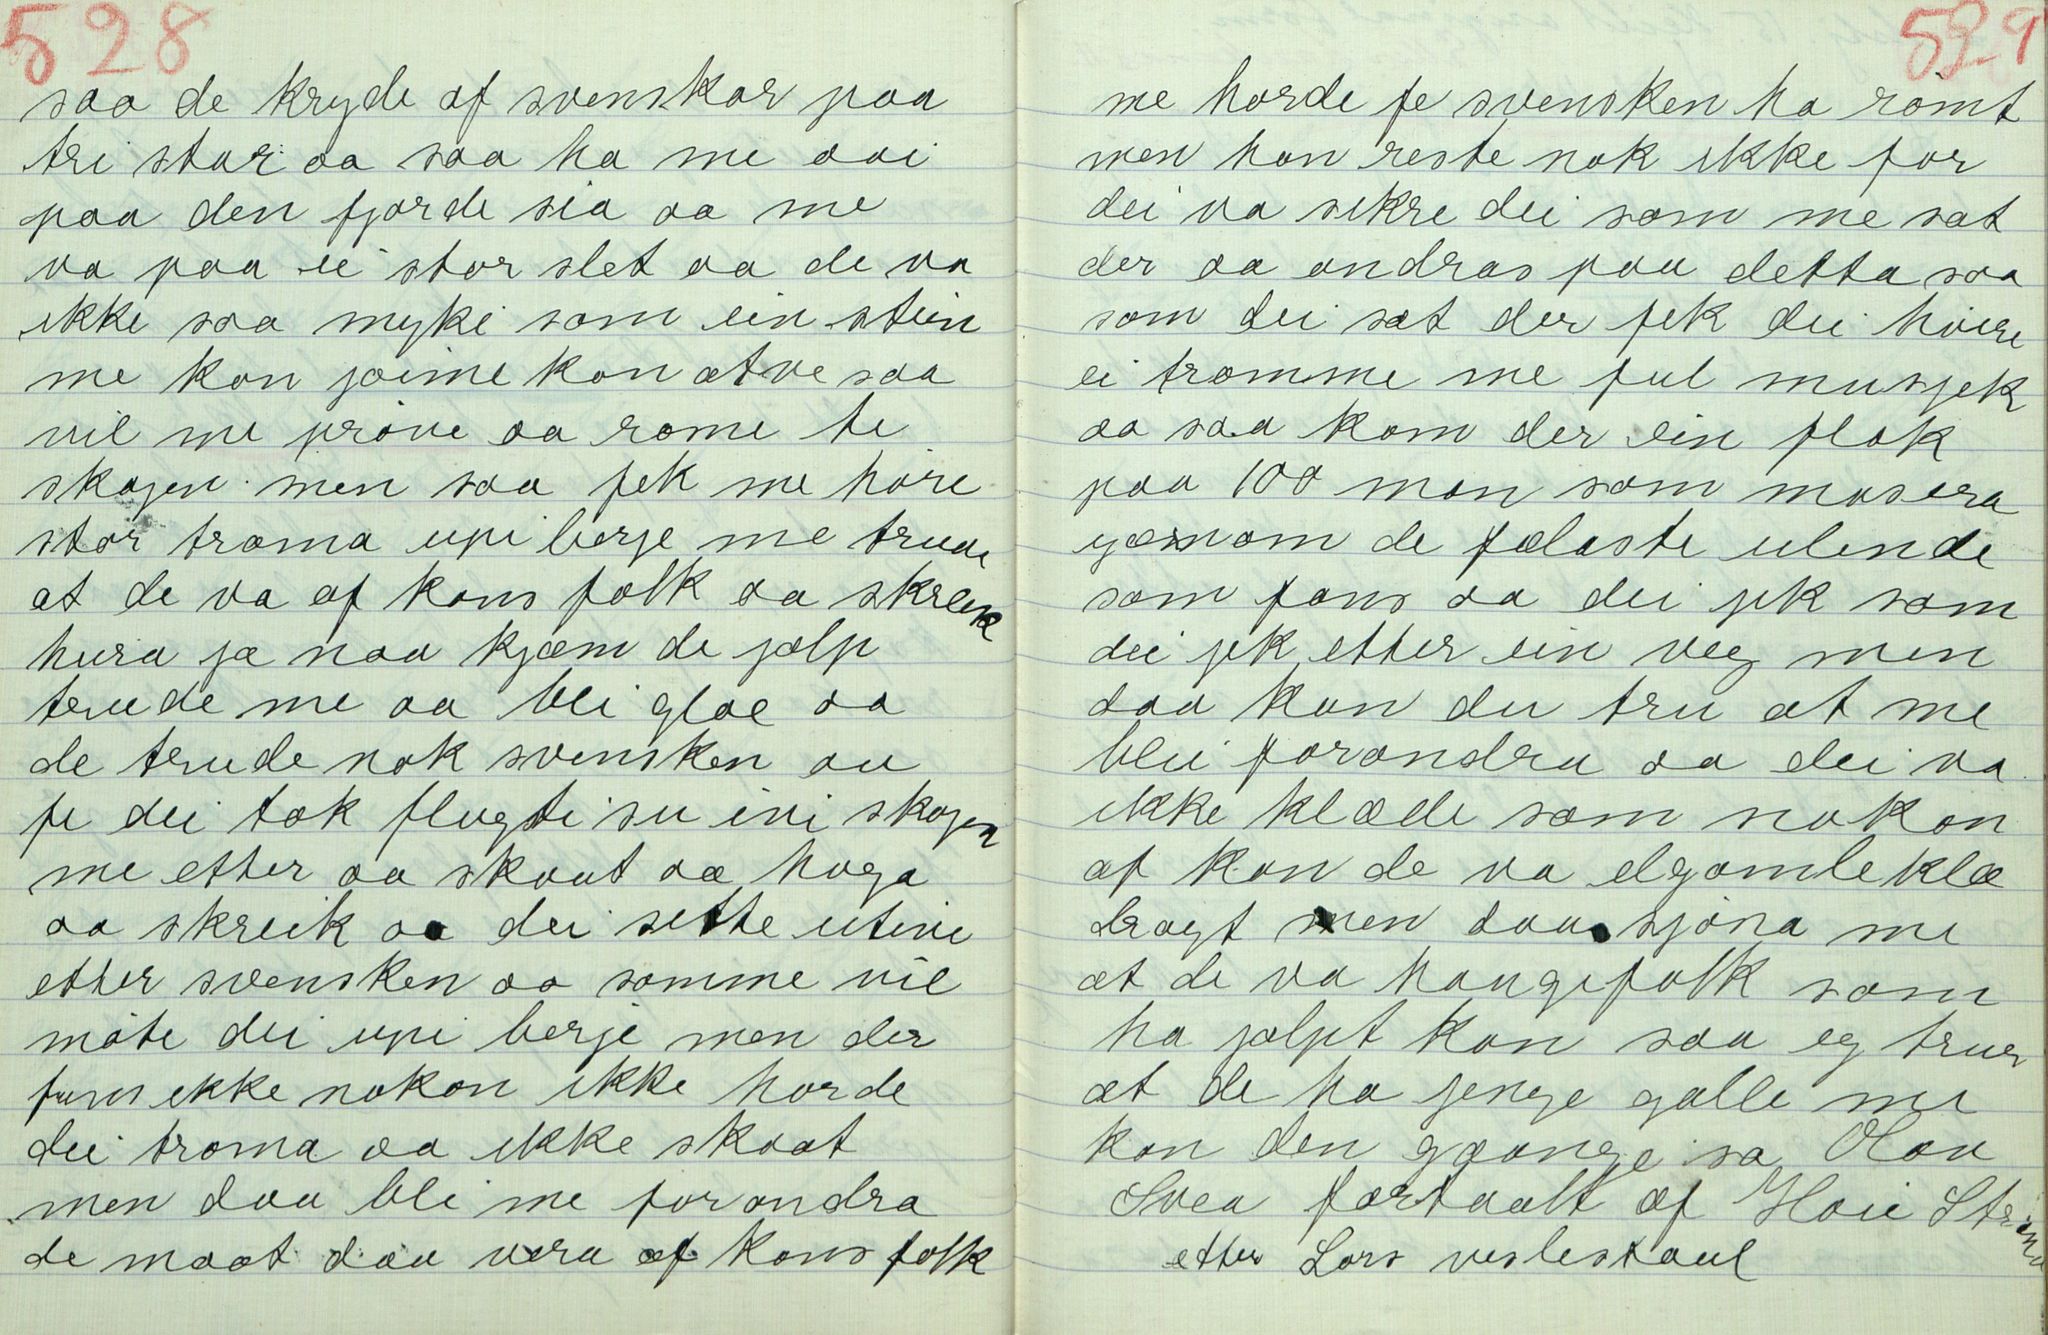 528
saa de kryde af svenskar paa
tri star aa saa ha me aai
paa den fjorde sia aa me
va paa ei stor slet aa de va
ikke saa myke som ein stein
me kon joime kon atve saa
vil me prøve aa rome te
skogen men saa fek me høre
stor troma upi berje me trude
at de va af kons folk aa skreik
hura ja naa kjæm de jælp
trude me aa bli glae aa
de trude nok svensken au
fe dei tok flugti su ini skogen
me etter aa skaat aa hoga
aa skreik aa dei sette utive
etter svensken aa somme vil
møte dei upi berje men der
funs ikke nokon ikke horde
dei troma aa ikke skaat
men daa bli me forandra
de maat daa vera af kons folk
529
me horde fe svensken ha rømt
men han reste nok ikke for
dei va sikre dei som me sat
der aa undras paa detta saa
som dei sat der fek dei høire
ei tromme me ful musjek
aa saa kom der ein flok
paa 100 man som masera
gjænom de fælaste ulende
som fans aa dei jek som
dei jek etter ein veg men
daa kan du tru at me
blei forandra aa dei va
ikke klæde som nokon
af kon de va elgamle klæ
dragt men daa sjøna me
at de va haugefolk som
ha jælpt kon saa eg truer
at de ha jenge galle me
kon den ggonge sa Olav
Svea fortaalt af Haie
etter Lars veslestaul